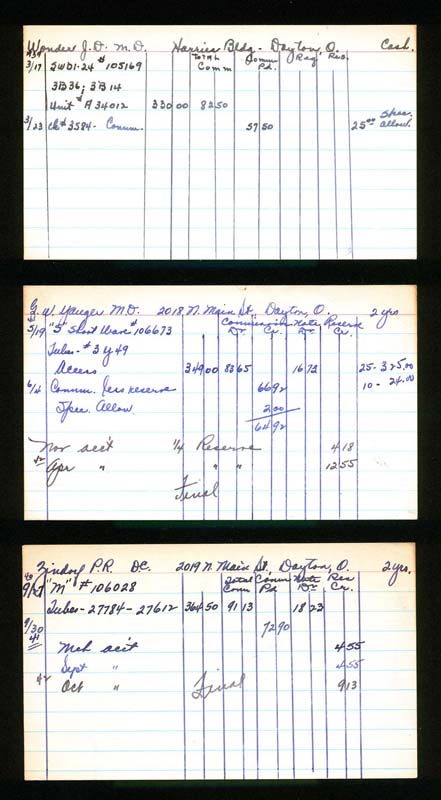 Wonder J.D. M.D. Harries Bldg - Dayton, O. Cash.
Total Comm Comm Pd. Res.
3/17 SW01-24 # 105169
3B36; 3B14
Unit # A 34012 330 00 82 50
3/23 ck # 3584 - Comm. 57 50 25 00 Spec. Allow.
G.W. Yauger M.D. 2018 N. Main St., Dayton, O. 2 yrs
Commission Note Reserve
5/19 "S" Short Wave # 106673 Dr. Cr. Dr. Cr.
Tubes - # 3 Y 49
Access 349 00 83 65 16 73 25 - 325.00
6/4 Comm. less reserve 66 92 10 - 24.00
Spec. Allow. 2 00
64 92
Nov acc't 1/4 Reserve 4 18
42 Apr " " " 12 55
Final
Zindorf P.R. DC. 2019 N. Main St., Dayton, O. 2 yrs.
Total Comm Comm Pd. Note Dr. Res Cr.
"M" # 106028
Tubes - 27784 - 27612 364 50 91 13 18 23
9/30 72 90
41 Mch acc't 4 55
Sept " 4 55
42 Oct " Final 9 13